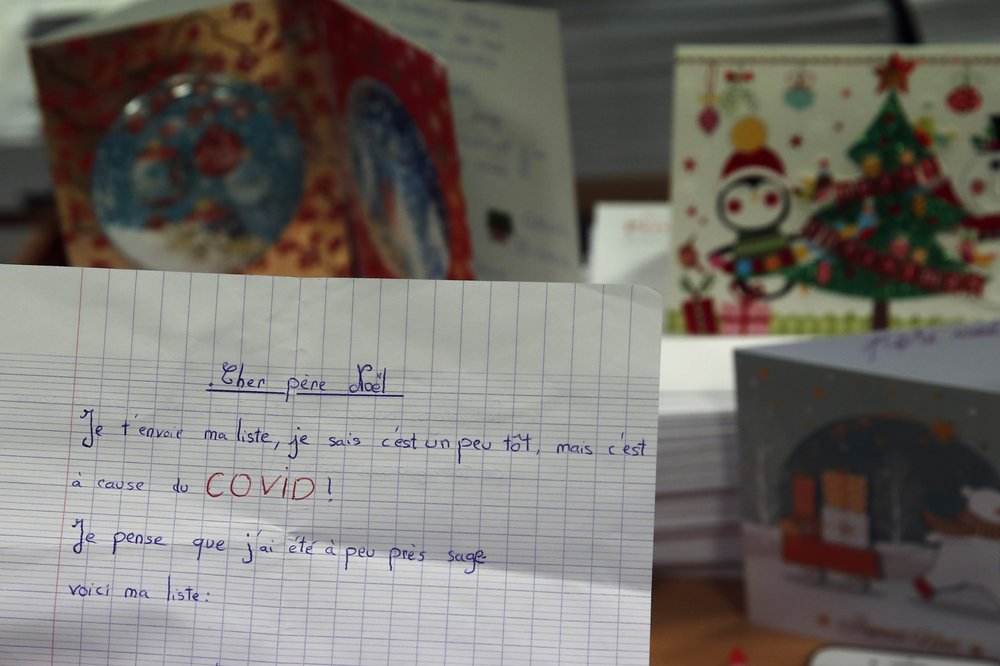 Cher père Noël
Je t'envoie ma liste, je sais c'est un peu tôt, mais c'est
à cause du COVID !
Je pense que j'ai été à peu près sage
voici ma liste :